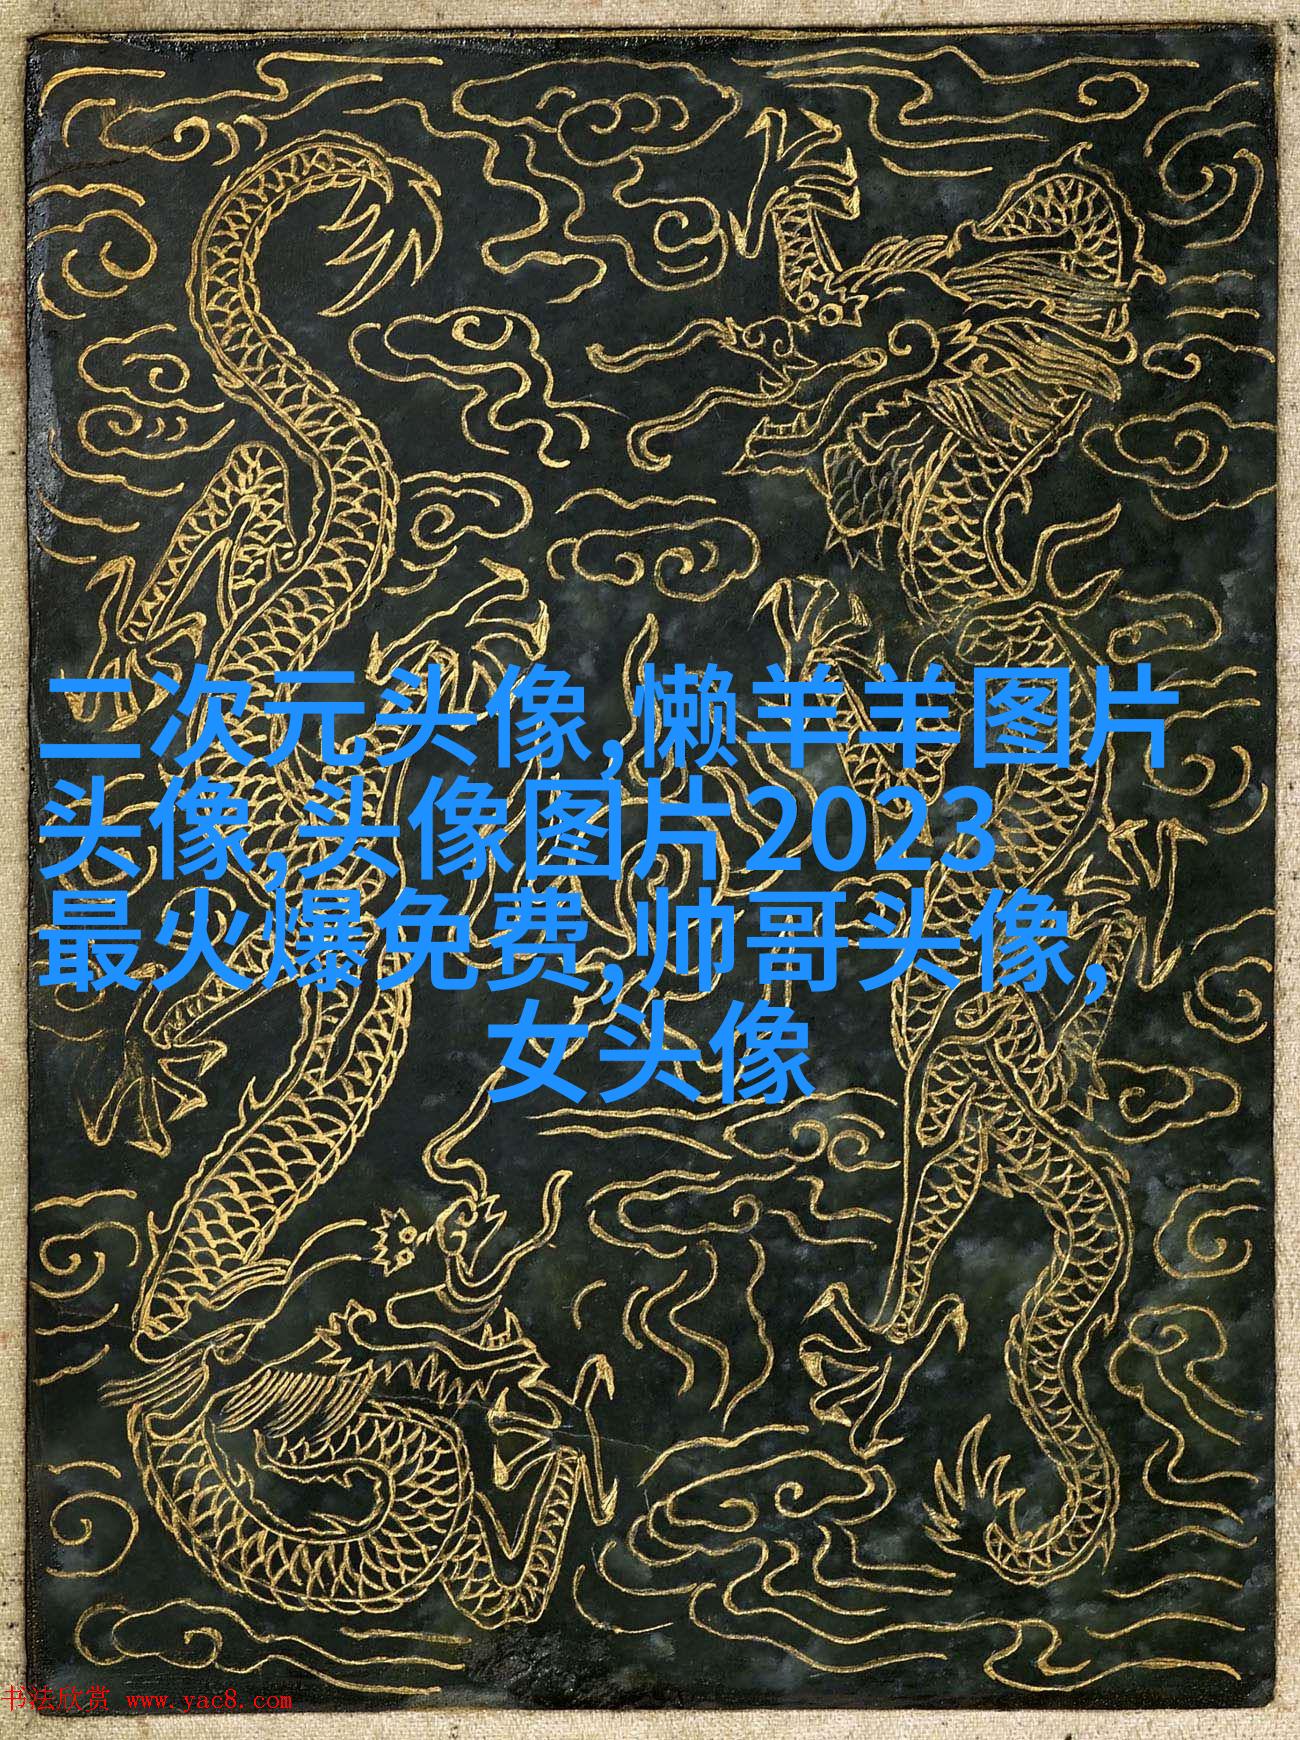 二次元头像,懒羊羊图片
头像,头像图片2023
最火爆免费,帅哥头像,
女头像
书法欣赏 www.yac8.com